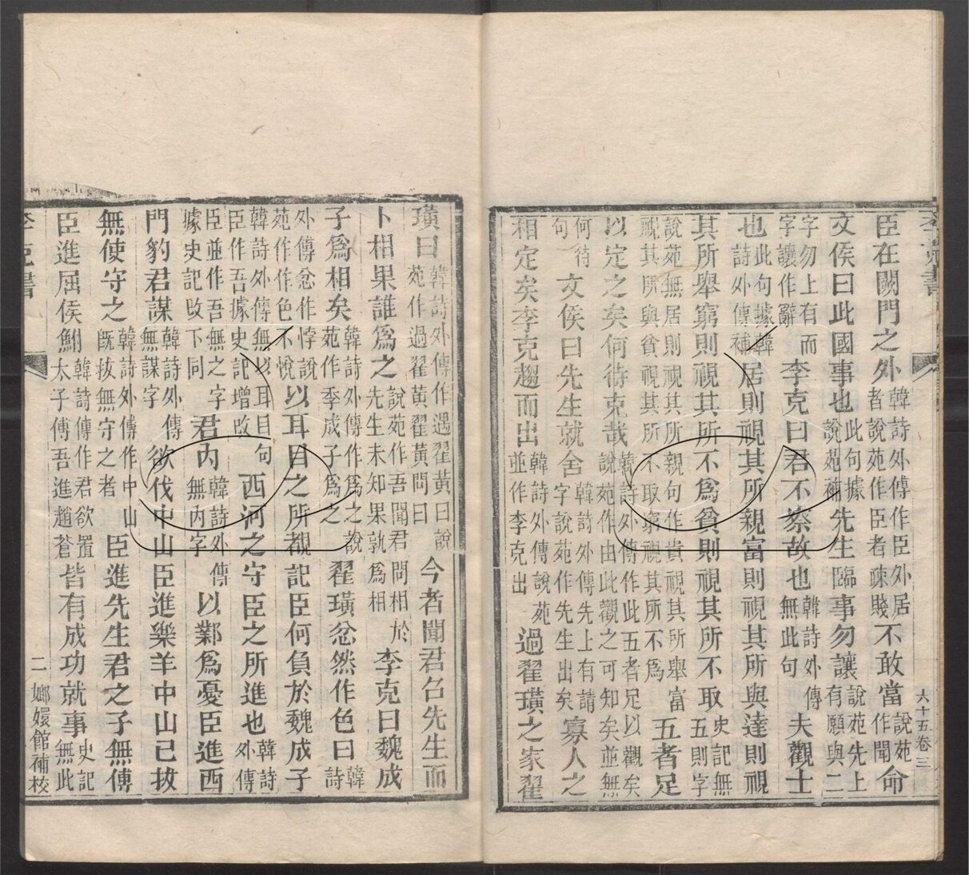 臣在闕門之外韓詩外傳作臣外居者說苑作臣者疎賤不敢當說苑作聞命
文侯曰此國事也此句據說苑補先生臨事勿讓說苑先上有願與二
字勿上有而字讓作辭李克曰君不察故也韓詩外傳無此句夫觀士
也此句據韓詩外傳補居則視其所親富則視其所與達則視
其所舉窮則視其所不為貧則視其所不取史記無五則字
說苑無居則視其所親句作貴視其所舉富視其所與貧視其所不取窮視其所不為五者足
以定之矣何待克哉韓詩外傳作此五者足以觀矣說苑作由此觀之可知矣並無
何待句文侯曰先生就舍韓詩外傳先上有請字說苑作先生出矣寡人之
相定矣李克趨而出韓詩外傳說苑並作李克出過翟璜之家翟
璜曰韓詩外傳作遇翟黃曰說苑作過翟黃翟黃問曰今者聞君召先生而
卜相果誰為之說苑作吾聞君問相於先生未知果孰為相李克曰魏成
子為相矣韓詩外傳作為之說苑作季成子為之翟璜忿然作色曰韓詩
外傳忿作悖說苑作作色不悅以耳目之所覩記臣何負於魏成子
韓詩外傳無以耳目句臣作吾據史記增改西河之守臣之所進也韓詩外傳
臣並作吾無之字據史記改下同君內韓詩外傳無內字以鄴為憂臣進西
門豹君謀韓詩外傳無謀字欲伐中山臣進樂羊中山已拔
無使守之韓詩外傳作中山既拔無守之者臣進先生君之子無傅
臣進屈侯鮒韓詩傳作君欲置太子傅吾進趙蒼皆有成功就事史記無此
李克書
二
嫏嬛館補校